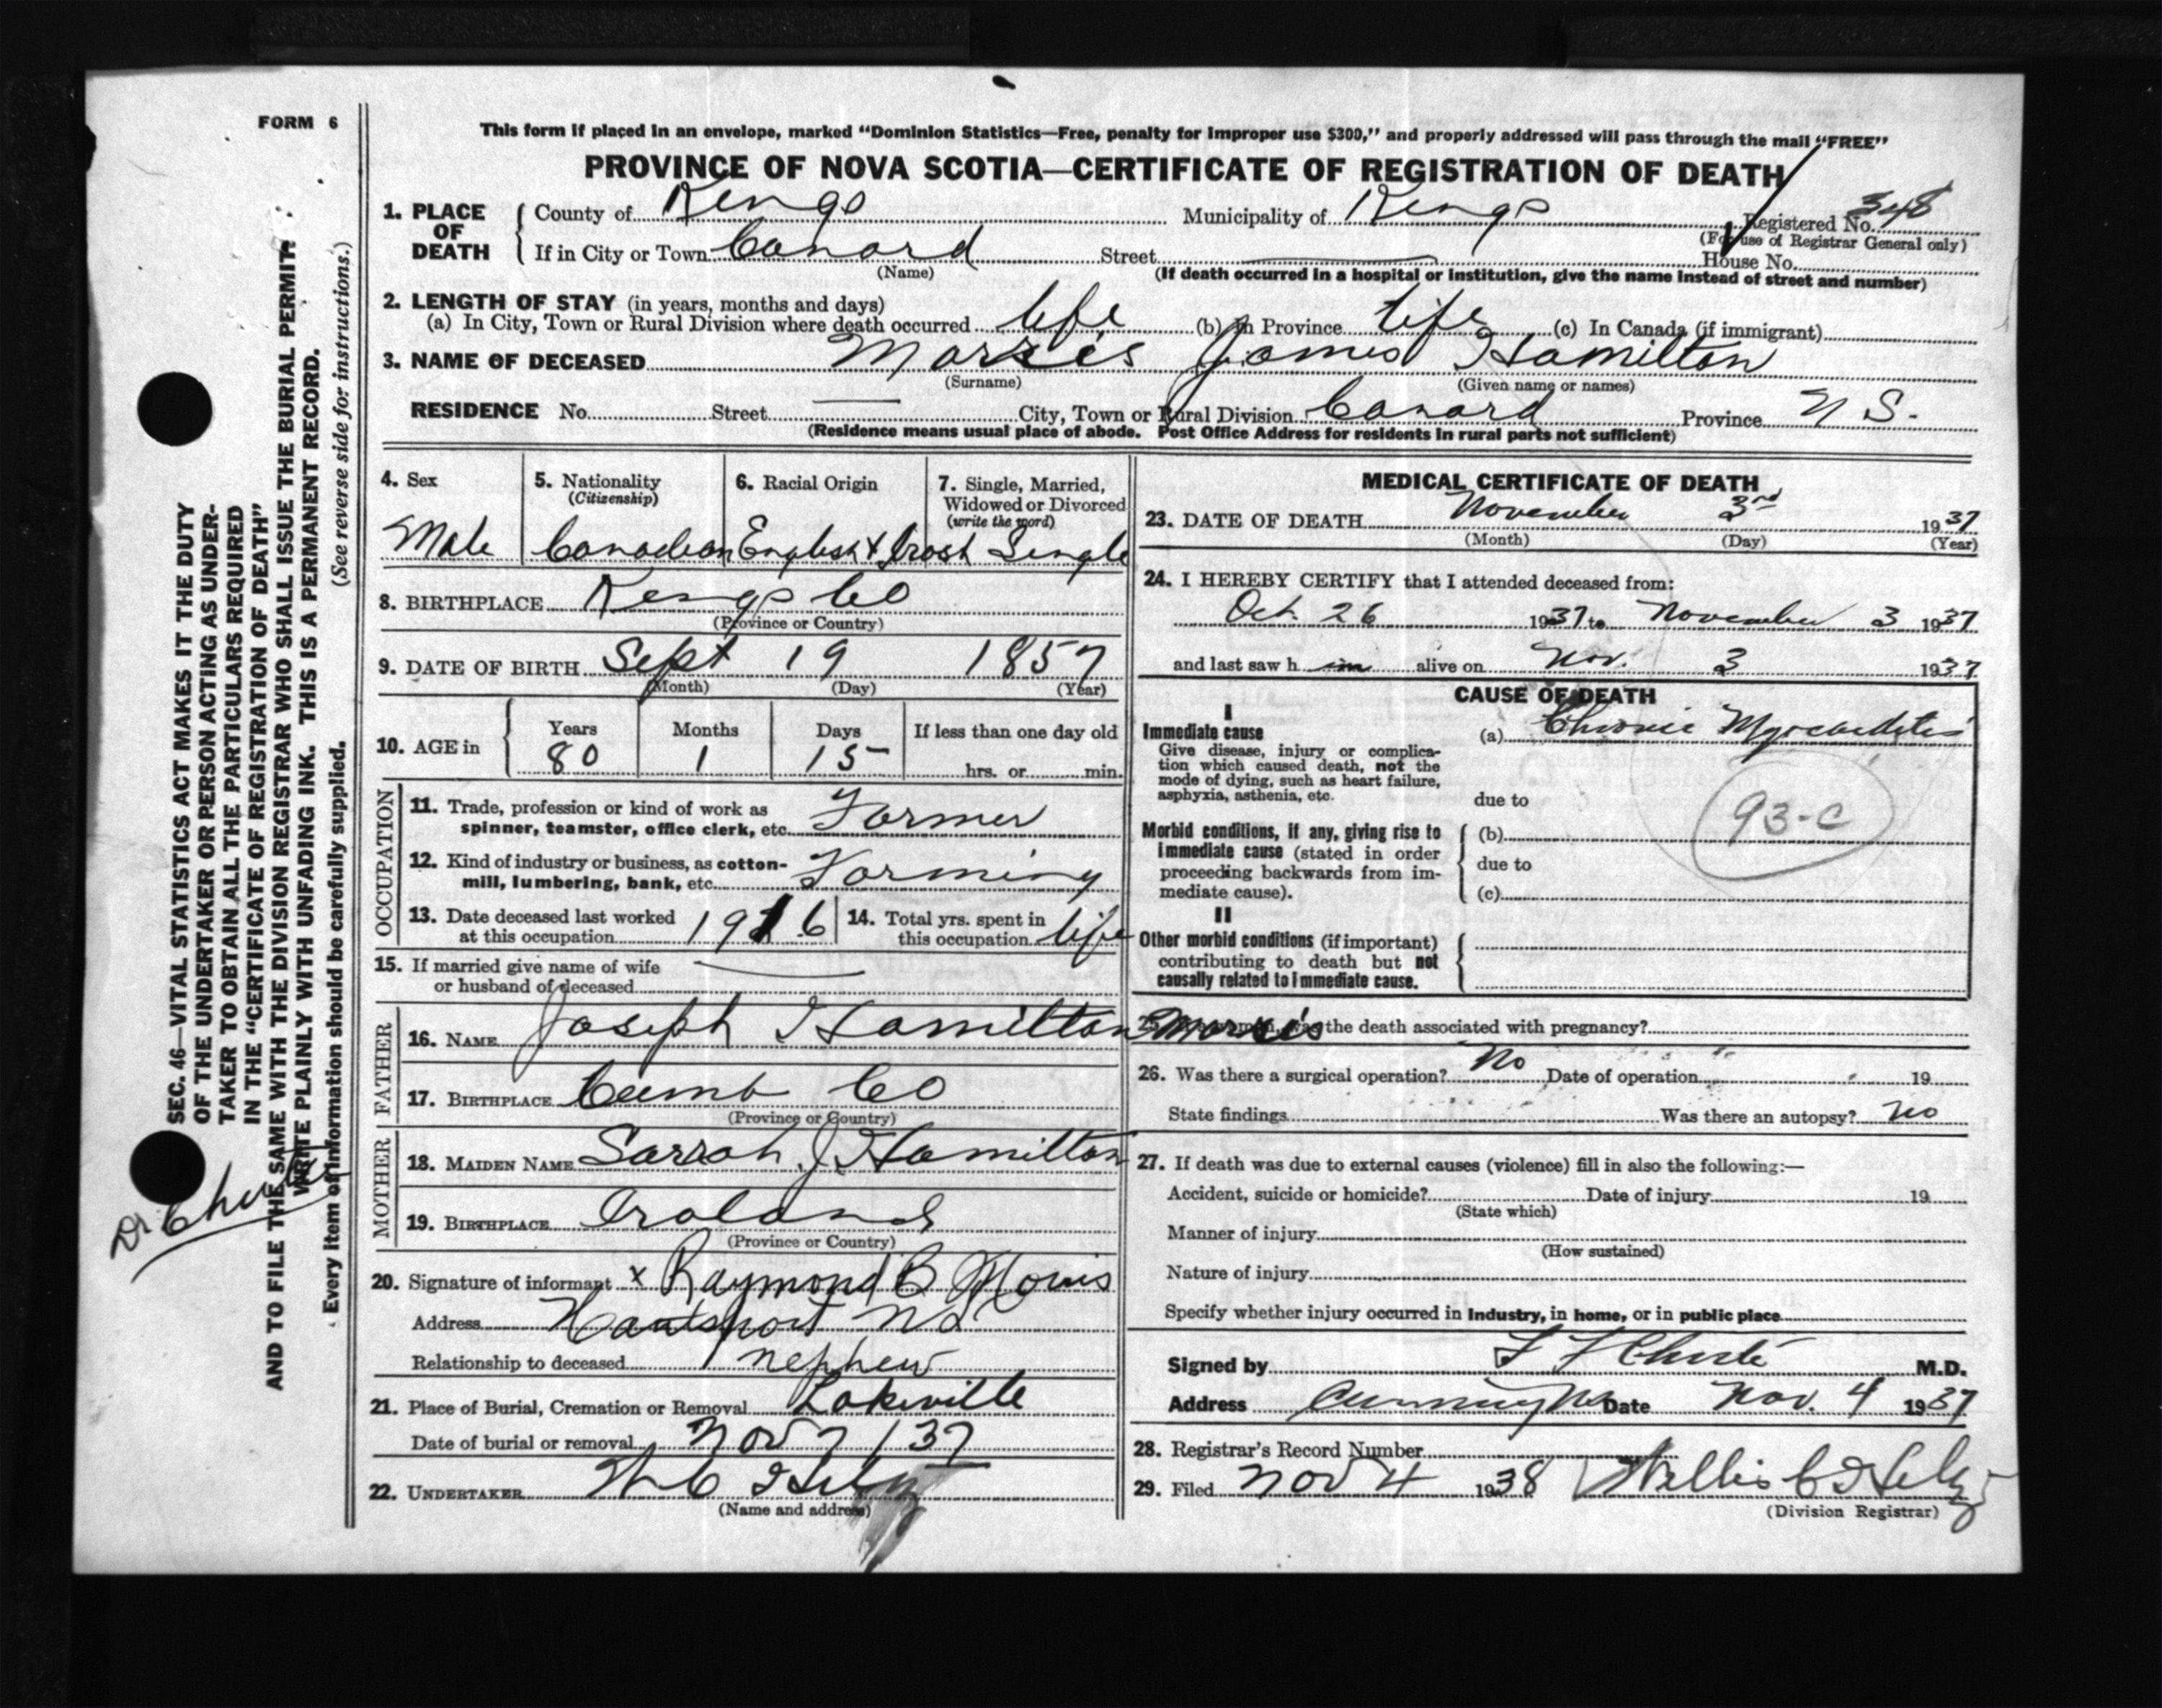 FORM 6
This form if placed in an envelope, marked "Dominion Statistics—Free, penalty for improper use $300," and properly addressed will pass through the mail "FREE"
PROVINCE OF NOVA SCOTIA—CERTIFICATE OF REGISTRATION OF DEATH
1. PLACE OF DEATH County of Kings Municipality of Kings Registered No. 348
(For use of Registrar General only)
If in City or Town Canard Street House No.
(Name) (If death occurred in a hospital or institution, give the name instead of street and number)
2. LENGTH OF STAY (in years, months and days)
(a) In City, Town or Rural Division where death occurred life (b) in Province life (c) In Canada (if immigrant)
3. NAME OF DECEASED Morris James Hamilton
(Surname) (Given name or names)
RESIDENCE No. Street City, Town or Rural Division Canard Province N S.
(Residence means usual place of abode. Post Office Address for residents in rural parts not sufficient)
4. Sex 5. Nationality (Citizenship) 6. Racial Origin 7. Single, Married, Widowed or Divorced (write the word)
Male Canadian English & Irosh Single
8. BIRTHPLACE Kings Co
(Province or Country)
9. DATE OF BIRTH Sept 19 1857
(Month) (Day) (Year)
10. AGE in Years Months Days If less than one day old
80 1 15 hrs. or min.
OCCUPATION
11. Trade, profession or kind of work as
spinner, teamster, office clerk, etc. Farmer
12. Kind of industry or business, as cotton-
mill, lumbering, bank, etc. Farming
13. Date deceased last worked
at this occupation 1916
14. Total yrs. spent in
this occupation life
15. If married give name of wife
or husband of deceased
FATHER
16. NAME Joseph Hamilton Morris
17. BIRTHPLACE Cumb Co
(Province or Country)
MOTHER
18. MAIDEN NAME Sarrah J Hamilton
19. BIRTHPLACE Iroland
(Province or Country)
20. Signature of informant x Raymond B Morris
Address Hantsport NS
Relationship to deceased nephew
21. Place of Burial, Cremation or Removal Lakeville
Date of burial or removal Nov 7 / 37
22. UNDERTAKER W C
(Name and address)
MEDICAL CERTIFICATE OF DEATH
23. DATE OF DEATH November 3rd 1937
(Month) (Day) (Year)
24. I HEREBY CERTIFY that I attended deceased from:
Oct. 26 1937 to November 3 1937
and last saw h im alive on Nov. 3 1937
CAUSE OF DEATH
I
Immediate cause
Give disease, injury or complica-
tion which caused death, not the
mode of dying, such as heart failure,
asphyxia, asthenia, etc.
(a) Chronic Myocarditis
due to
93-c
Morbid conditions, if any, giving rise to
immediate cause (stated in order
proceeding backwards from im-
mediate cause).
(b)
due to
(c)
II
Other morbid conditions (if important)
contributing to death but not
causally related to immediate cause.
was the death associated with pregnancy?
26. Was there a surgical operation? No Date of operation 19
State findings Was there an autopsy? No
27. If death was due to external causes (violence) fill in also the following:—
Accident, suicide or homicide? Date of injury 19
(State which)
Manner of injury
(How sustained)
Nature of injury
Specify whether injury occurred in industry, in home, or in public place
Signed by F F Chute M.D.
Address Canning NS Date Nov. 4 1937
28. Registrar's Record Number
29. Filed Nov 4 1938 Willis C
(Division Registrar)
SEC. 46—VITAL STATISTICS ACT MAKES IT THE DUTY
OF THE UNDERTAKER OR PERSON ACTING AS UNDER-
TAKER TO OBTAIN ALL THE PARTICULARS REQUIRED
IN THE "CERTIFICATE OF REGISTRATION OF DEATH"
AND TO FILE THE SAME WITH THE DIVISION REGISTRAR WHO SHALL ISSUE THE BURIAL PERMIT.
WRITE PLAINLY WITH UNFADING INK. THIS IS A PERMANENT RECORD.
Every item of information should be carefully supplied. (See reverse side for instructions.)
Dr Chute